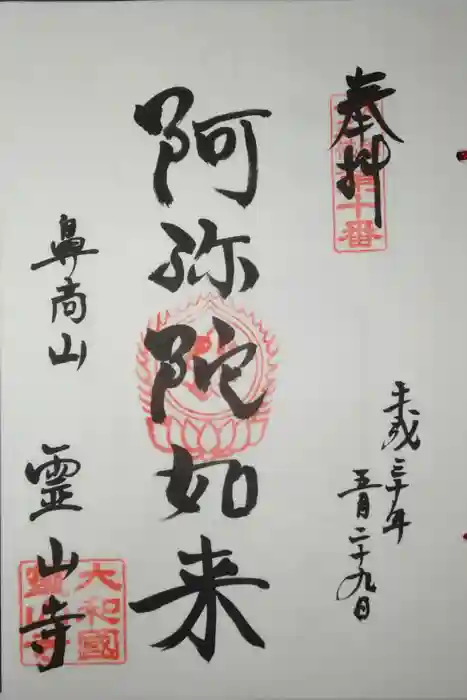 奉拝
十番
平成三十年
五月二十九日
阿弥陀如来
鼻高山
霊山寺
大和國
霊山寺